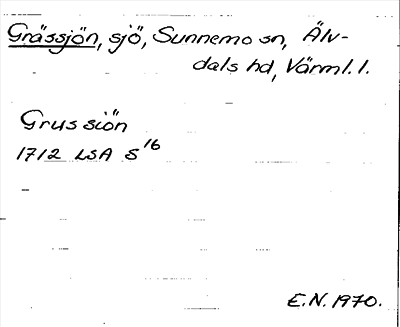 Grässjön, sjö, Sunnemo sn, Älv-
dals hd, Värml. l.
Grussiön
1712 LSA S 16
E.N. 1970.